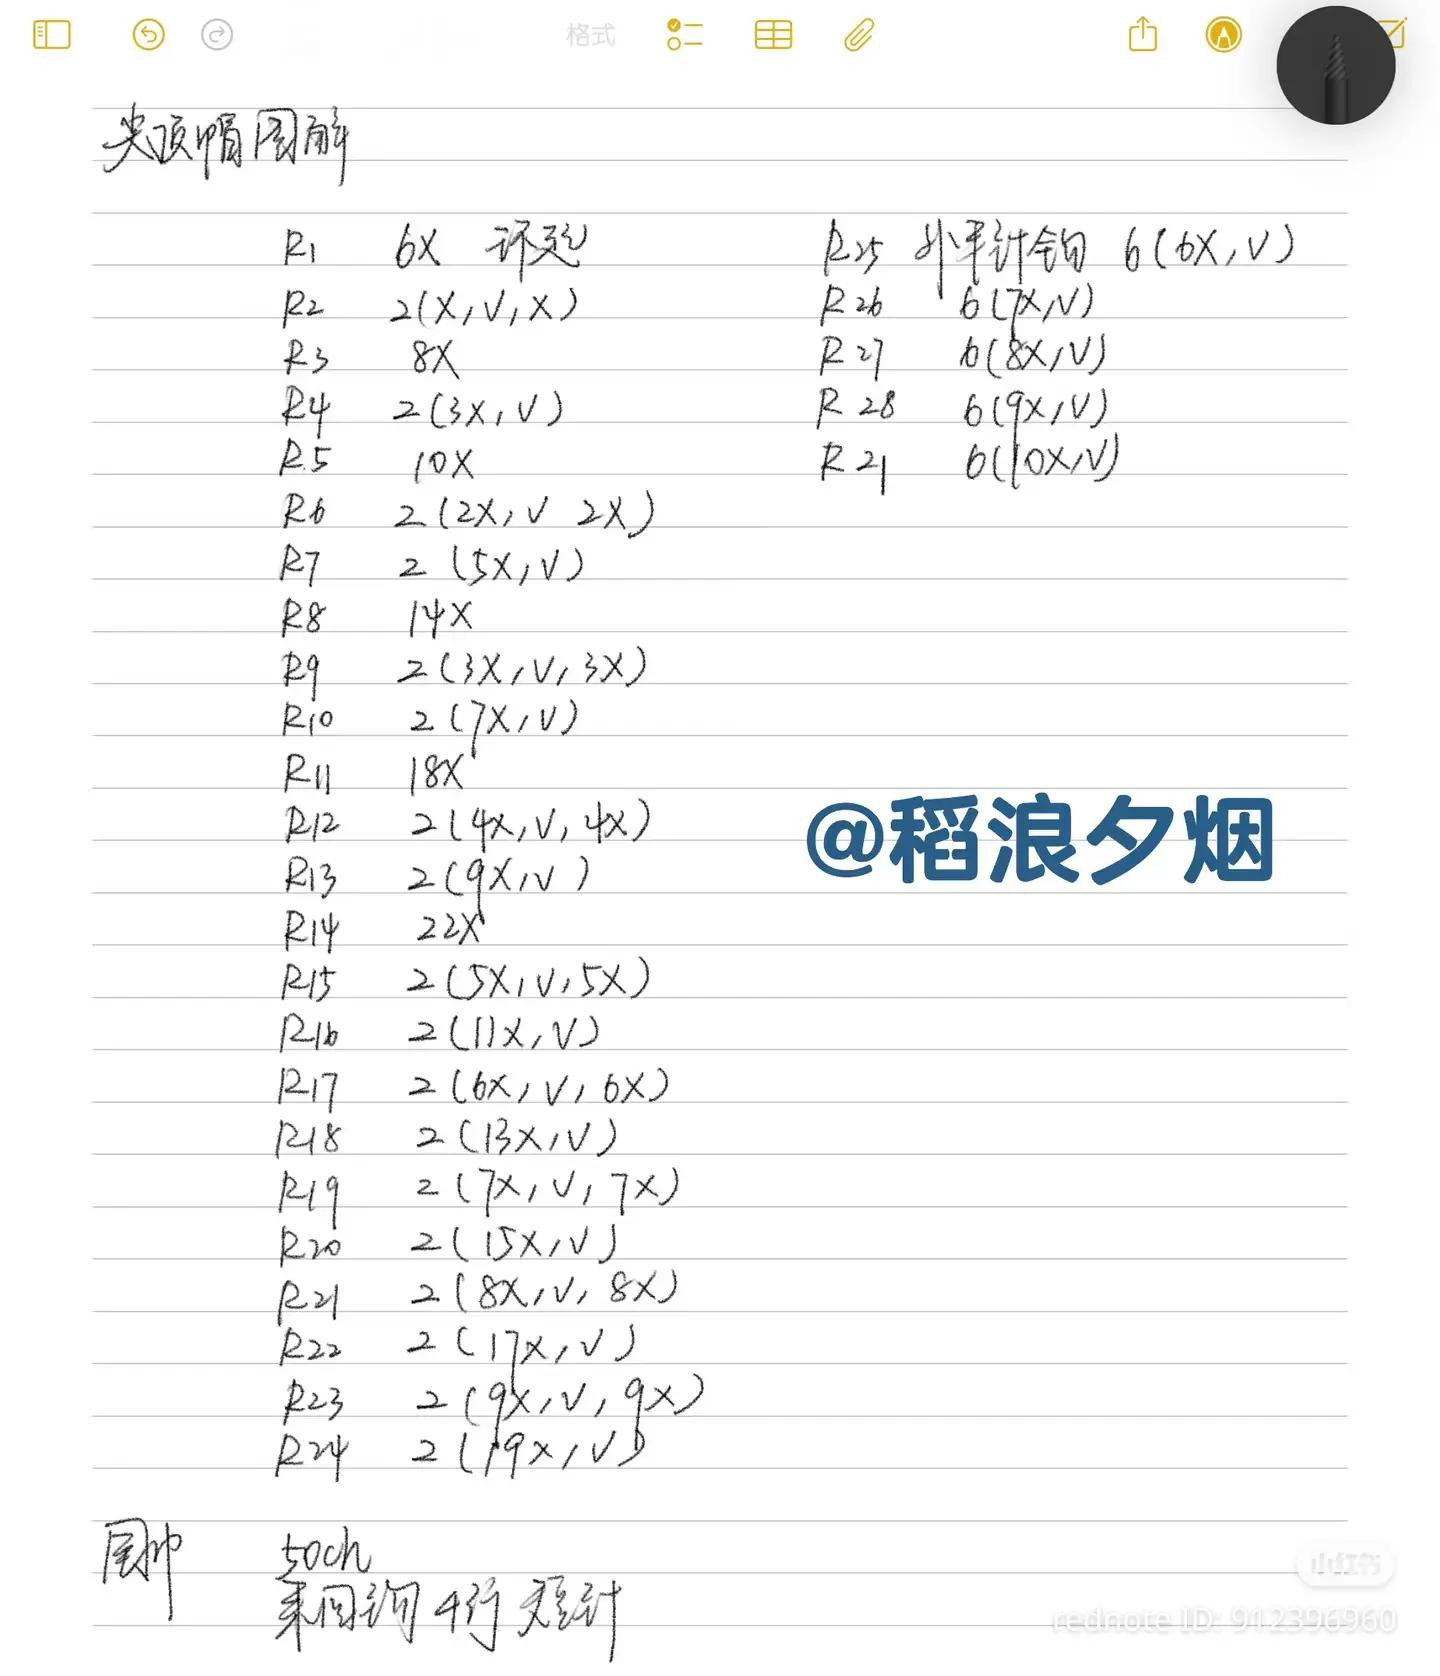 格式
尖顶帽图解
R1 6X 环起
R2 2(X,V,X)
R3 8X
R4 2(3X,V)
R5 10X
R6 2(2X,V 2X)
R7 2(5X,V)
R8 14X
R9 2(3X,V,3X)
R10 2(7X,V)
R11 18X
R12 2(4X,V,4X)
R13 2(9X,V)
R14 22X
R15 2(5X,V,5X)
R16 2(11X,V)
R17 2(6X,V,6X)
R18 2(13X,V)
R19 2(7X,V,7X)
R20 2(15X,V)
R21 2(8X,V,8X)
R22 2(17X,V)
R23 2(9X,V,9X)
R24 2(19X,V)
R25 外半针钩 6(6X,V)
R26 6(7X,V)
R27 6(8X,V)
R28 6(9X,V)
R21 6(10X,V)
@稻浪夕烟
围巾 50ch
来回钩4行 短针
小红书
rednote ID: 912396960